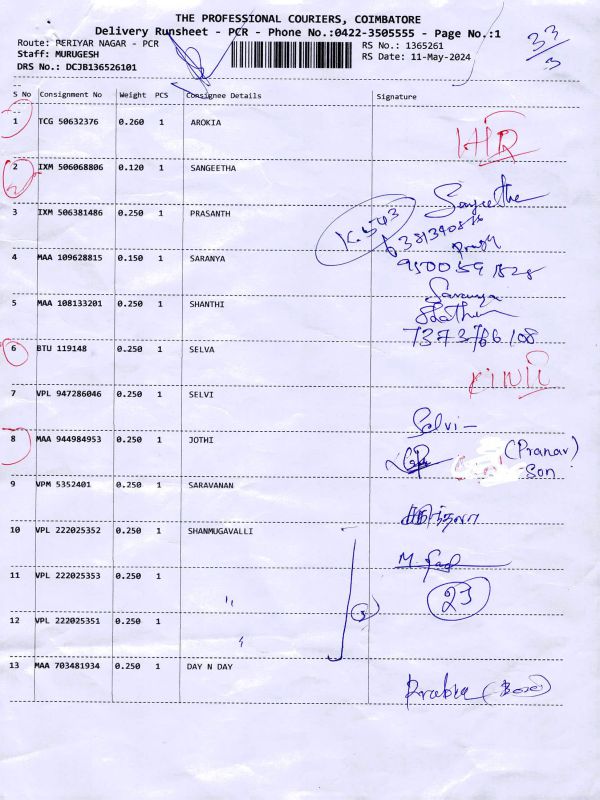 THE PROFESSIONAL COURIERS, COIMBATORE
Delivery Runsheet - PCR - Phone No.:0422-3505555 - Page No.:1
Route: PERIYAR NAGAR - PCR
Staff: MURUGESH
DRS No.: DCJB136526101
RS No.: 1365261
RS Date: 11-May-2024
33/3
S No Consignment No Weight PCS Consignee Details Signature
1 TCG 50632376 0.260 1 AROKIA
2 IXM 506068806 0.120 1 SANGEETHA
Sangeetha
3 IXM 506381486 0.250 1 PRASANTH
4 MAA 109628815 0.150 1 SARANYA
Saranya
5 MAA 108133201 0.250 1 SHANTHI
6 BTU 119148 0.250 1 SELVA
7 VPL 947286046 0.250 1 SELVI
Selvi-
8 MAA 944984953 0.250 1 JOTHI
(Pranav)
Son
9 VPM 5352401 0.250 1 SARAVANAN
10 VPL 222025352 0.250 1 SHANMUGAVALLI
11 VPL 222025353 0.250 1 "
23
12 VPL 222025351 0.250 1 "
3
13 MAA 703481934 0.250 1 DAY N DAY